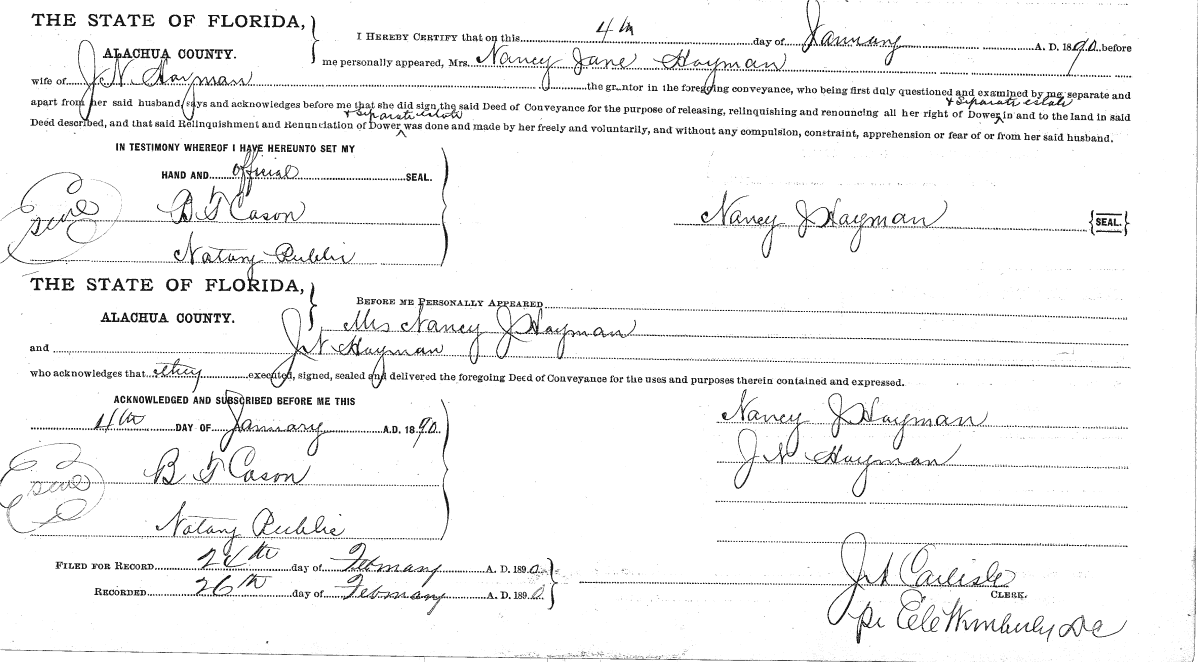 THE STATE OF FLORIDA,
ALACHUA COUNTY.
I HEREBY CERTIFY that on this 4th day of January A. D. 1890 before
me personally appeared, Mrs. Nancy Jane Hayman
wife of J. N. Hayman the grantor in the foregoing conveyance, who being first duly questioned and examined by me, separate and
& Separate estate
apart from her said husband, says and acknowledges before me that she did sign the said Deed of Conveyance for the purpose of releasing, relinquishing and renouncing all her right of Dower in and to the land in said
& Separate estate
Deed described, and that said Relinquishment and Renunciation of Dower was done and made by her freely and voluntarily, and without any compulsion, constraint, apprehension or fear of or from her said husband.
IN TESTIMONY WHEREOF I HAVE HEREUNTO SET MY
HAND AND official SEAL.
B F Cason
Nancy J Hayman {SEAL.}
Notary Public
THE STATE OF FLORIDA,
ALACHUA COUNTY.
BEFORE ME PERSONALLY APPEARED
Mrs Nancy J Hayman
and J N Hayman
who acknowledges that they executed, signed, sealed and delivered the foregoing Deed of Conveyance for the uses and purposes therein contained and expressed.
ACKNOWLEDGED AND SUBSCRIBED BEFORE ME THIS
4th DAY OF January A.D. 1890.
Nancy J Hayman
J N Hayman
B F Cason
Notary Public
FILED FOR RECORD 24th day of February A. D. 1890
RECORDED 26th day of February A. D. 1890
Carlisle
CLERK.
Wimberly DC